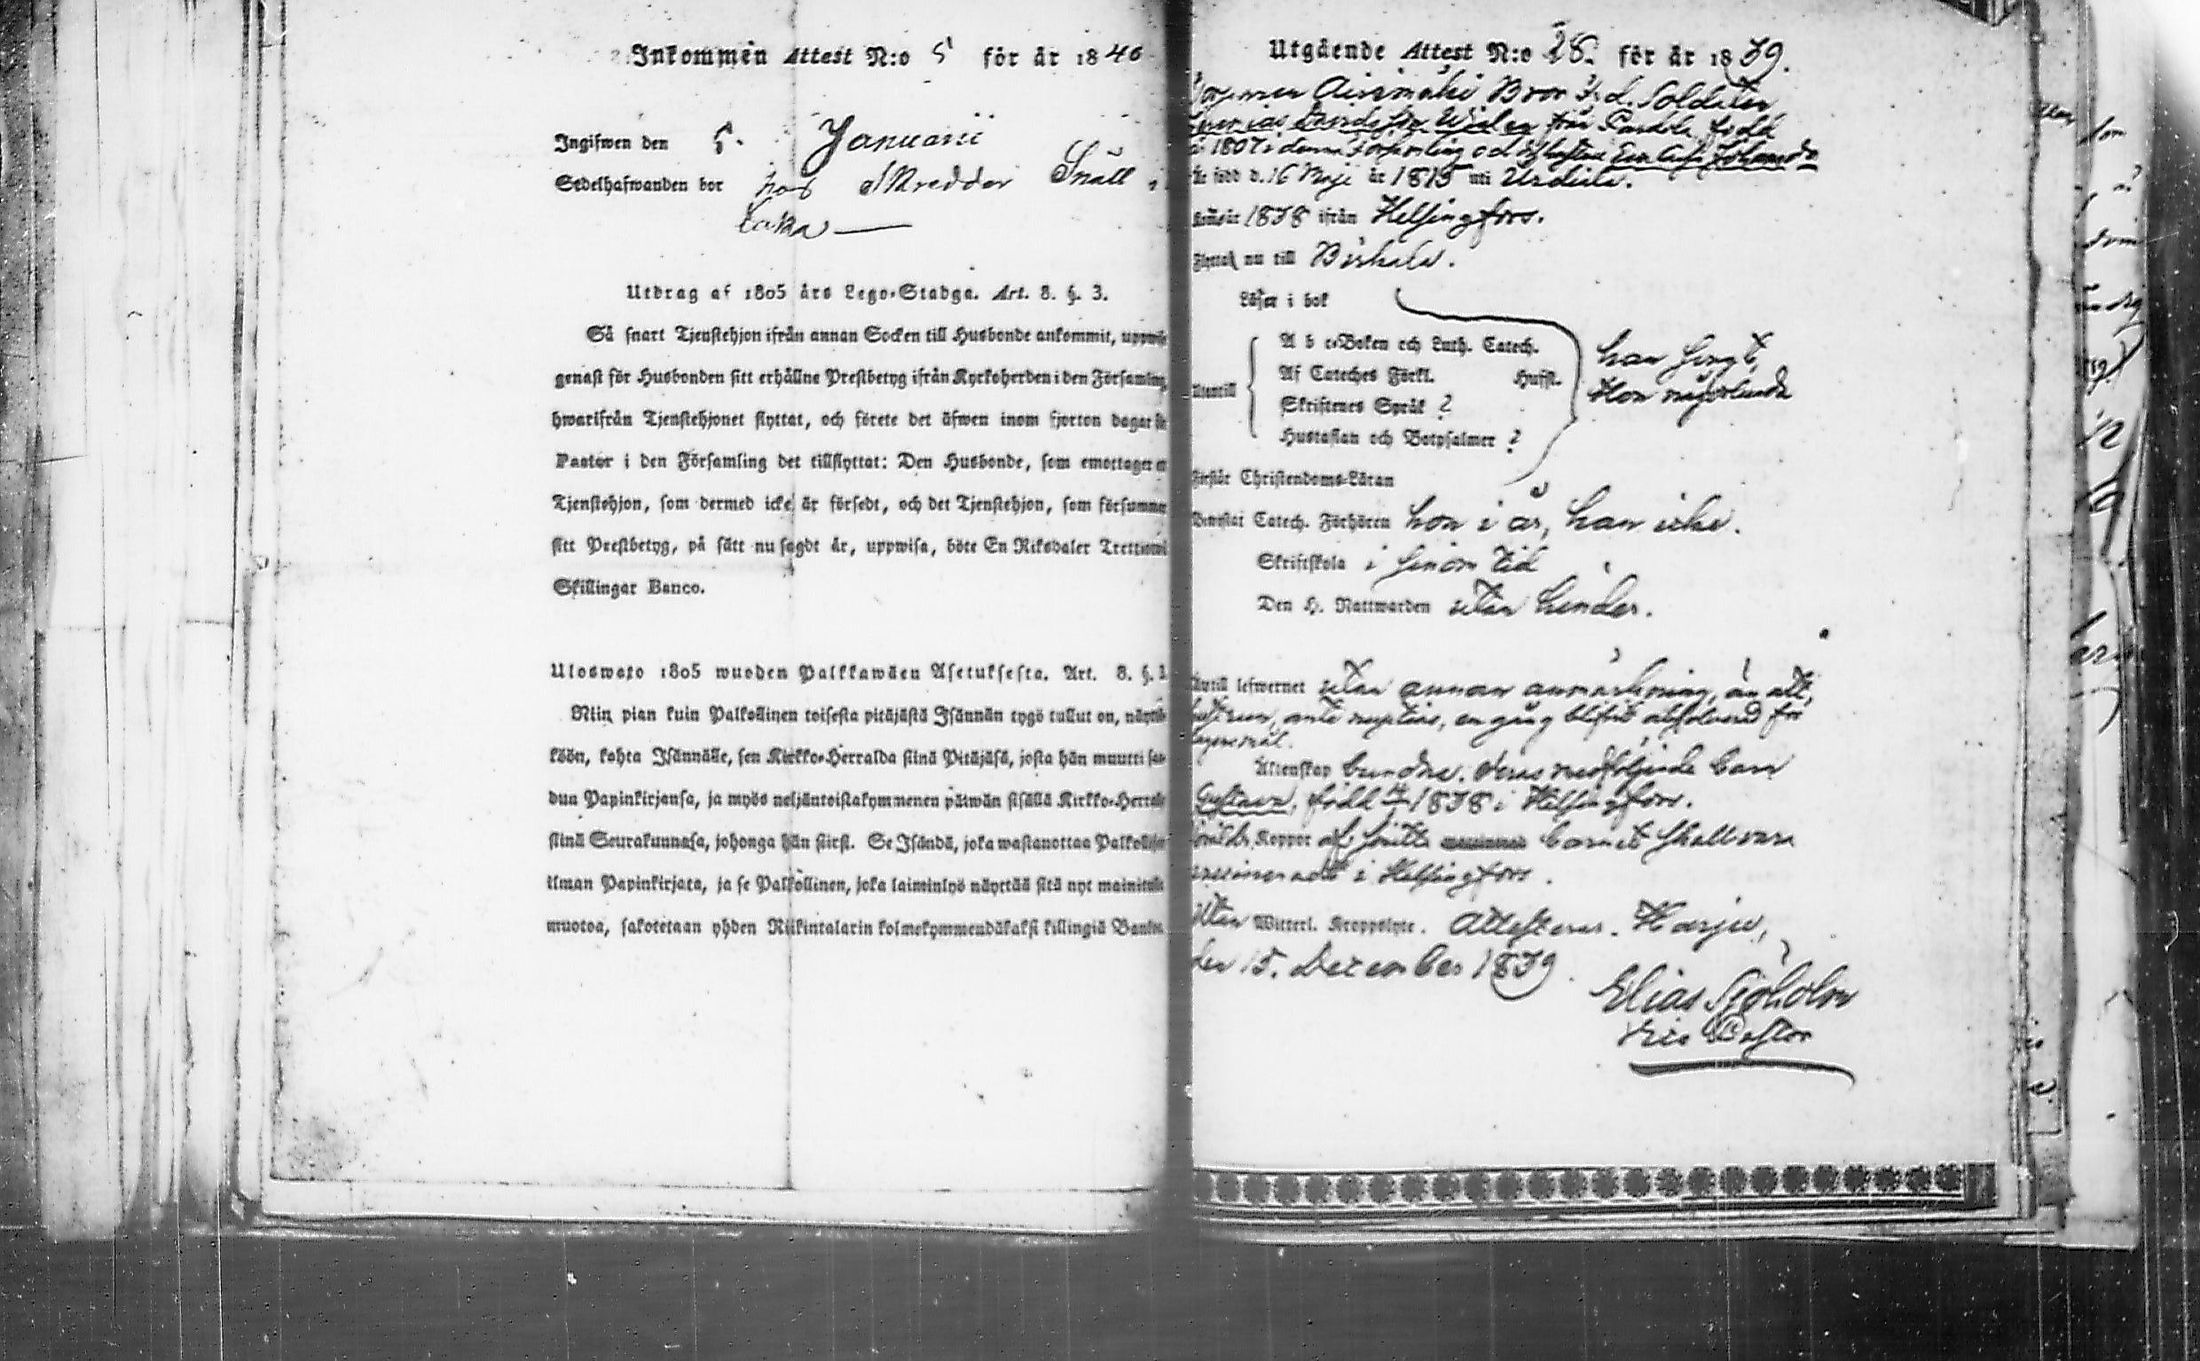 Inkommen Attest N:o 5 för år 1840
Ingifwen den 5. Januarii
Sedelhafwanden bor hos Skredder Snäll i
Laka
Utdrag af 1805 års Lego-Stadga. Art. 8. §. 3.
Så snart Tjenstehjon ifrån annan Socken till Husbonde ankommit, uppwise
genast för Husbonden sitt erhållne Prestbetyg ifrån Kyrkoherden i den Församling
hwarifrån Tjenstehjonet flyttat, och förete det äfwen inom fjorton dagar för
Pastor i den Församling det tillflyttat: Den Husbonde, som emottager et
Tjenstehjon, som dermed icke är försedt, och det Tjenstehjon, som försummar
sitt Prestbetyg, på sätt nu sagdt är, uppwisa, böte En Riksdaler Trettiotwå
Skillingar Banco.
Uloswato 1805 wuoden Palkkawäen Asetuksesta. Art. 8. §. 3.
Niin pian kuin Palkollinen toisesta pitäjästä Isännän tygö tullut on, näyttä-
köön, kohta Isännälle, sen Kirkko-Herralda siinä Pitäjäsä, josta hän muutti saa-
dun Papinkirjansa, ja myös neljäntoistakymmenen päiwän sisällä Kirkko-Herralle
siinä Seurakunnasa, johonga hän siirsi. Se Isändä, joka wastanottaa Palkollisen
ilman Papinkirjata, ja se Palkollinen, joka laiminlyö näyttää sitä nyt mainitulla
muotoa, sakotetaan yhden Riikintalarin kolmekymmendäkaksi killingiä Bankos
Utgående Attest N:o 28. för år 1839.
Airismäki Bror f. d. Soldaten
från Pardola född
1807 i denna Församling och hustru
är född d. 16 Maji år 1815 uti Urdiala.
1838 ifrån Helsingfors.
Flyttar nu till Birkala.
Läser i bok
A b c-Boken och Luth. Catech.
Utantill Af Cateches Förkl. Husst.
Skriftenes Språk ?
Hustaflan och Botpsalmer ?
han
Hon någorlunda
Förstår Christendoms-Läran
Bewistat Catech. Förhören hon i år, han icke.
Skriftskola i sinom tid
Den H. Nattwarden utan hinder.
Till lefwernet utan annan anmärkning, än att,
hustrun, ante nuptias, en gång blifvit absolverad för
lägersmål.
Äktenskap bundna. Deras medföljande barn
Gustava, född 1838 i Helsingfors.
Koppor af barnet skall vara
vaccineradt i Helsingfors.
Utan Witterl. Kroppslyte. Attesteras. Harju,
den 15. December 1839.
Elias Sjöholm
Vice Pastor